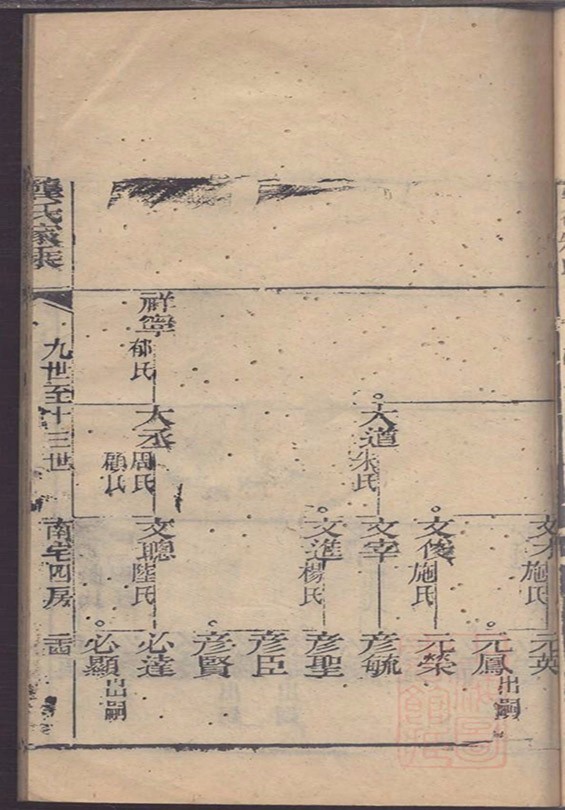 文才 施氏
元英
元鳳 出嗣
文俊 施氏
元榮
大道 朱氏
文宰
彥毓
文進 楊氏
彥聖
彥臣
彥賢
祥寧 郁氏
大丞 周氏 顧氏
文聰 陸氏
必達
必顯 出嗣
龔氏家乘
九世至十三世
南宅四房